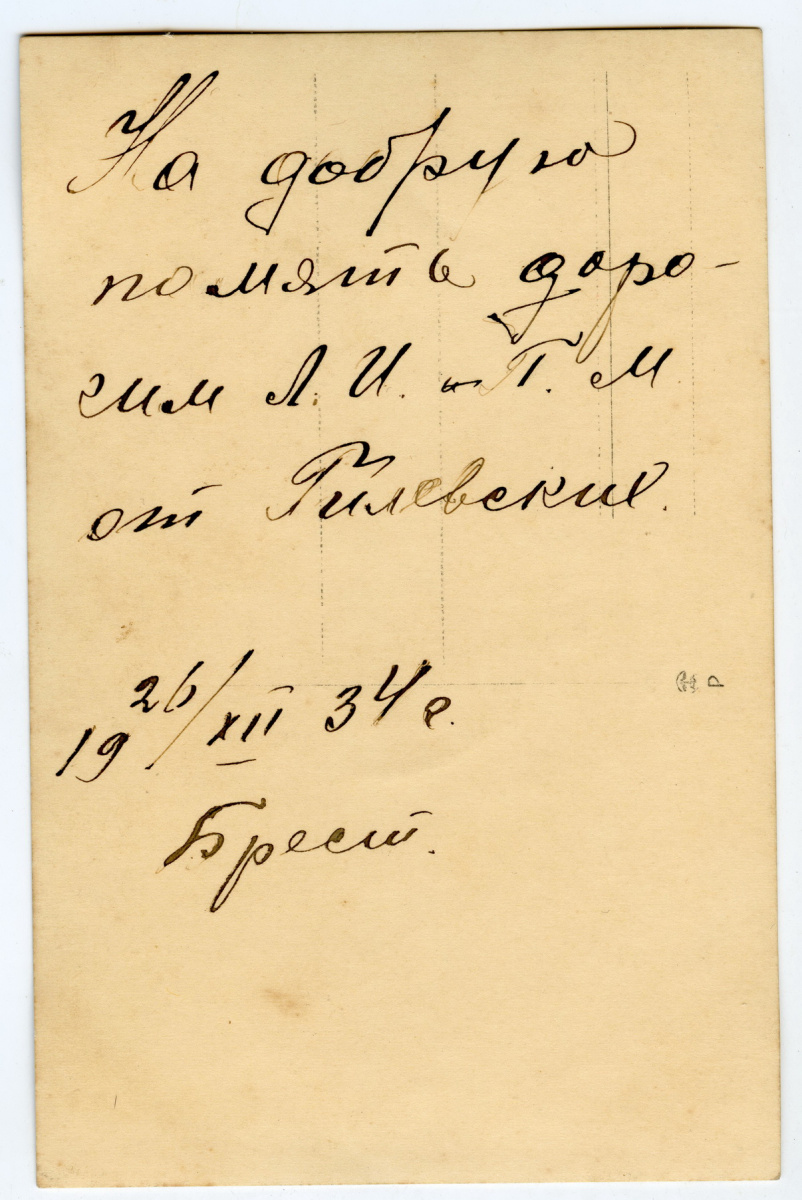 На добрую
память доро-
гим Л. И. и Г. М.
от Гилевских.
19 26/XII 34 г.
Брест.